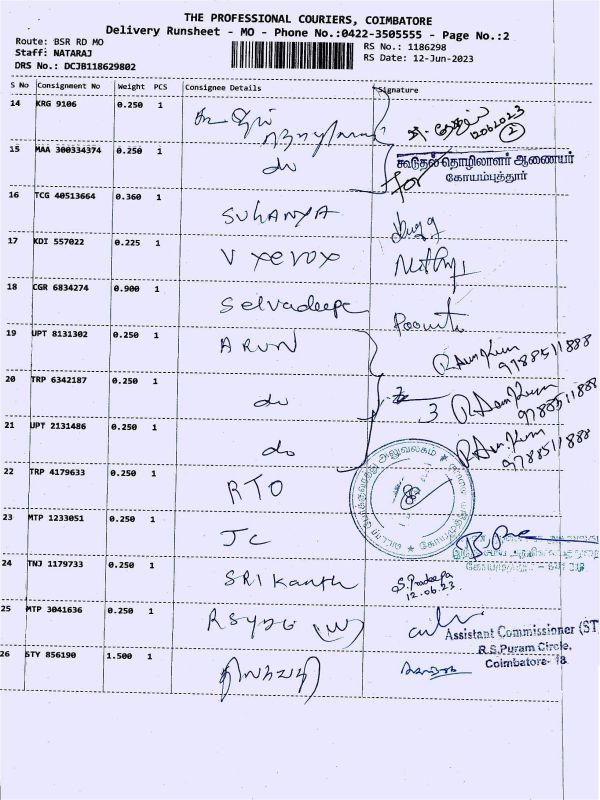 THE PROFESSIONAL COURIERS, COIMBATORE
Delivery Runsheet - MO - Phone No.:0422-3505555 - Page No.:2
Route: BSR RD MO
RS No.: 1186298
Staff: NATARAJ
RS Date: 12-Jun-2023
DRS No.: DCJB118629802
S No Consignment No Weight PCS Consignee Details Signature
14 KRG 9106 0.250 1
12062023
2
15 MAA 300334374 0.250 1 do
கூடுதல் தொழிலாளர் ஆணையர்
கோயம்புத்தூர்
for
16 TCG 40513664 0.360 1 SUKANYA
17 KDI 557022 0.225 1 V xerox
18 CGR 6834274 0.900 1 Selvadeepa
19 UPT 8131302 0.250 1 ARUN
9788511888
20 TRP 6342187 0.250 1 do 3
9788511888
21 UPT 2131486 0.250 1 do
9788511888
22 TRP 4179633 0.250 1 RTO
23 MTP 1233051 0.250 1 JC
24 TNJ 1179733 0.250 1 SRI Kanth S. Pradeepa
12.06.23
25 MTP 3041636 0.250 1
Assistant Commissioner (ST)
R.S.Puram Circle,
Coimbatore- 18
26 STY 856190 1.500 1